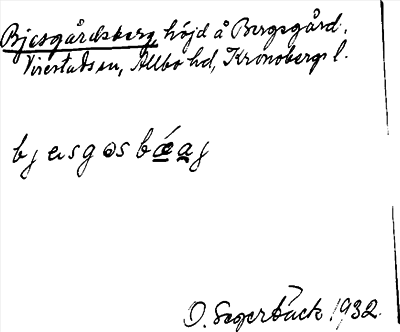 Bjesgårdsberg, höjd å Bergsgård,
Virestads sn, Allbo hd, Kronobergs l.
bjesgosbæag
O. Segerbäck 1932.